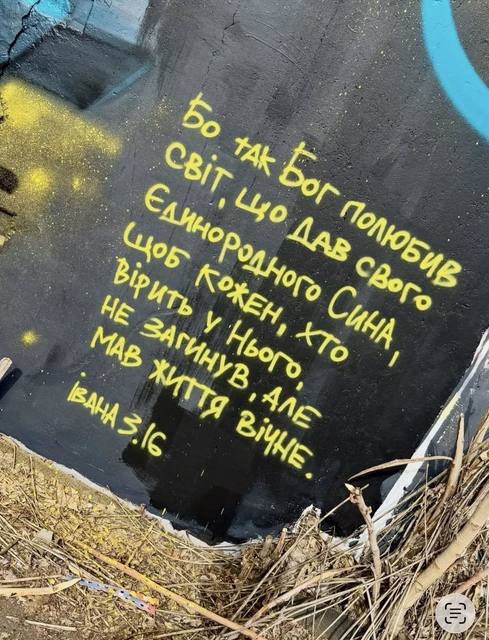 Бо так Бог полюбив
світ, що дав свого
Єдинородного Сина,
щоб кожен, хто
вірить у Нього,
не загинув, але
мав життя вічне.
Івана 3.16